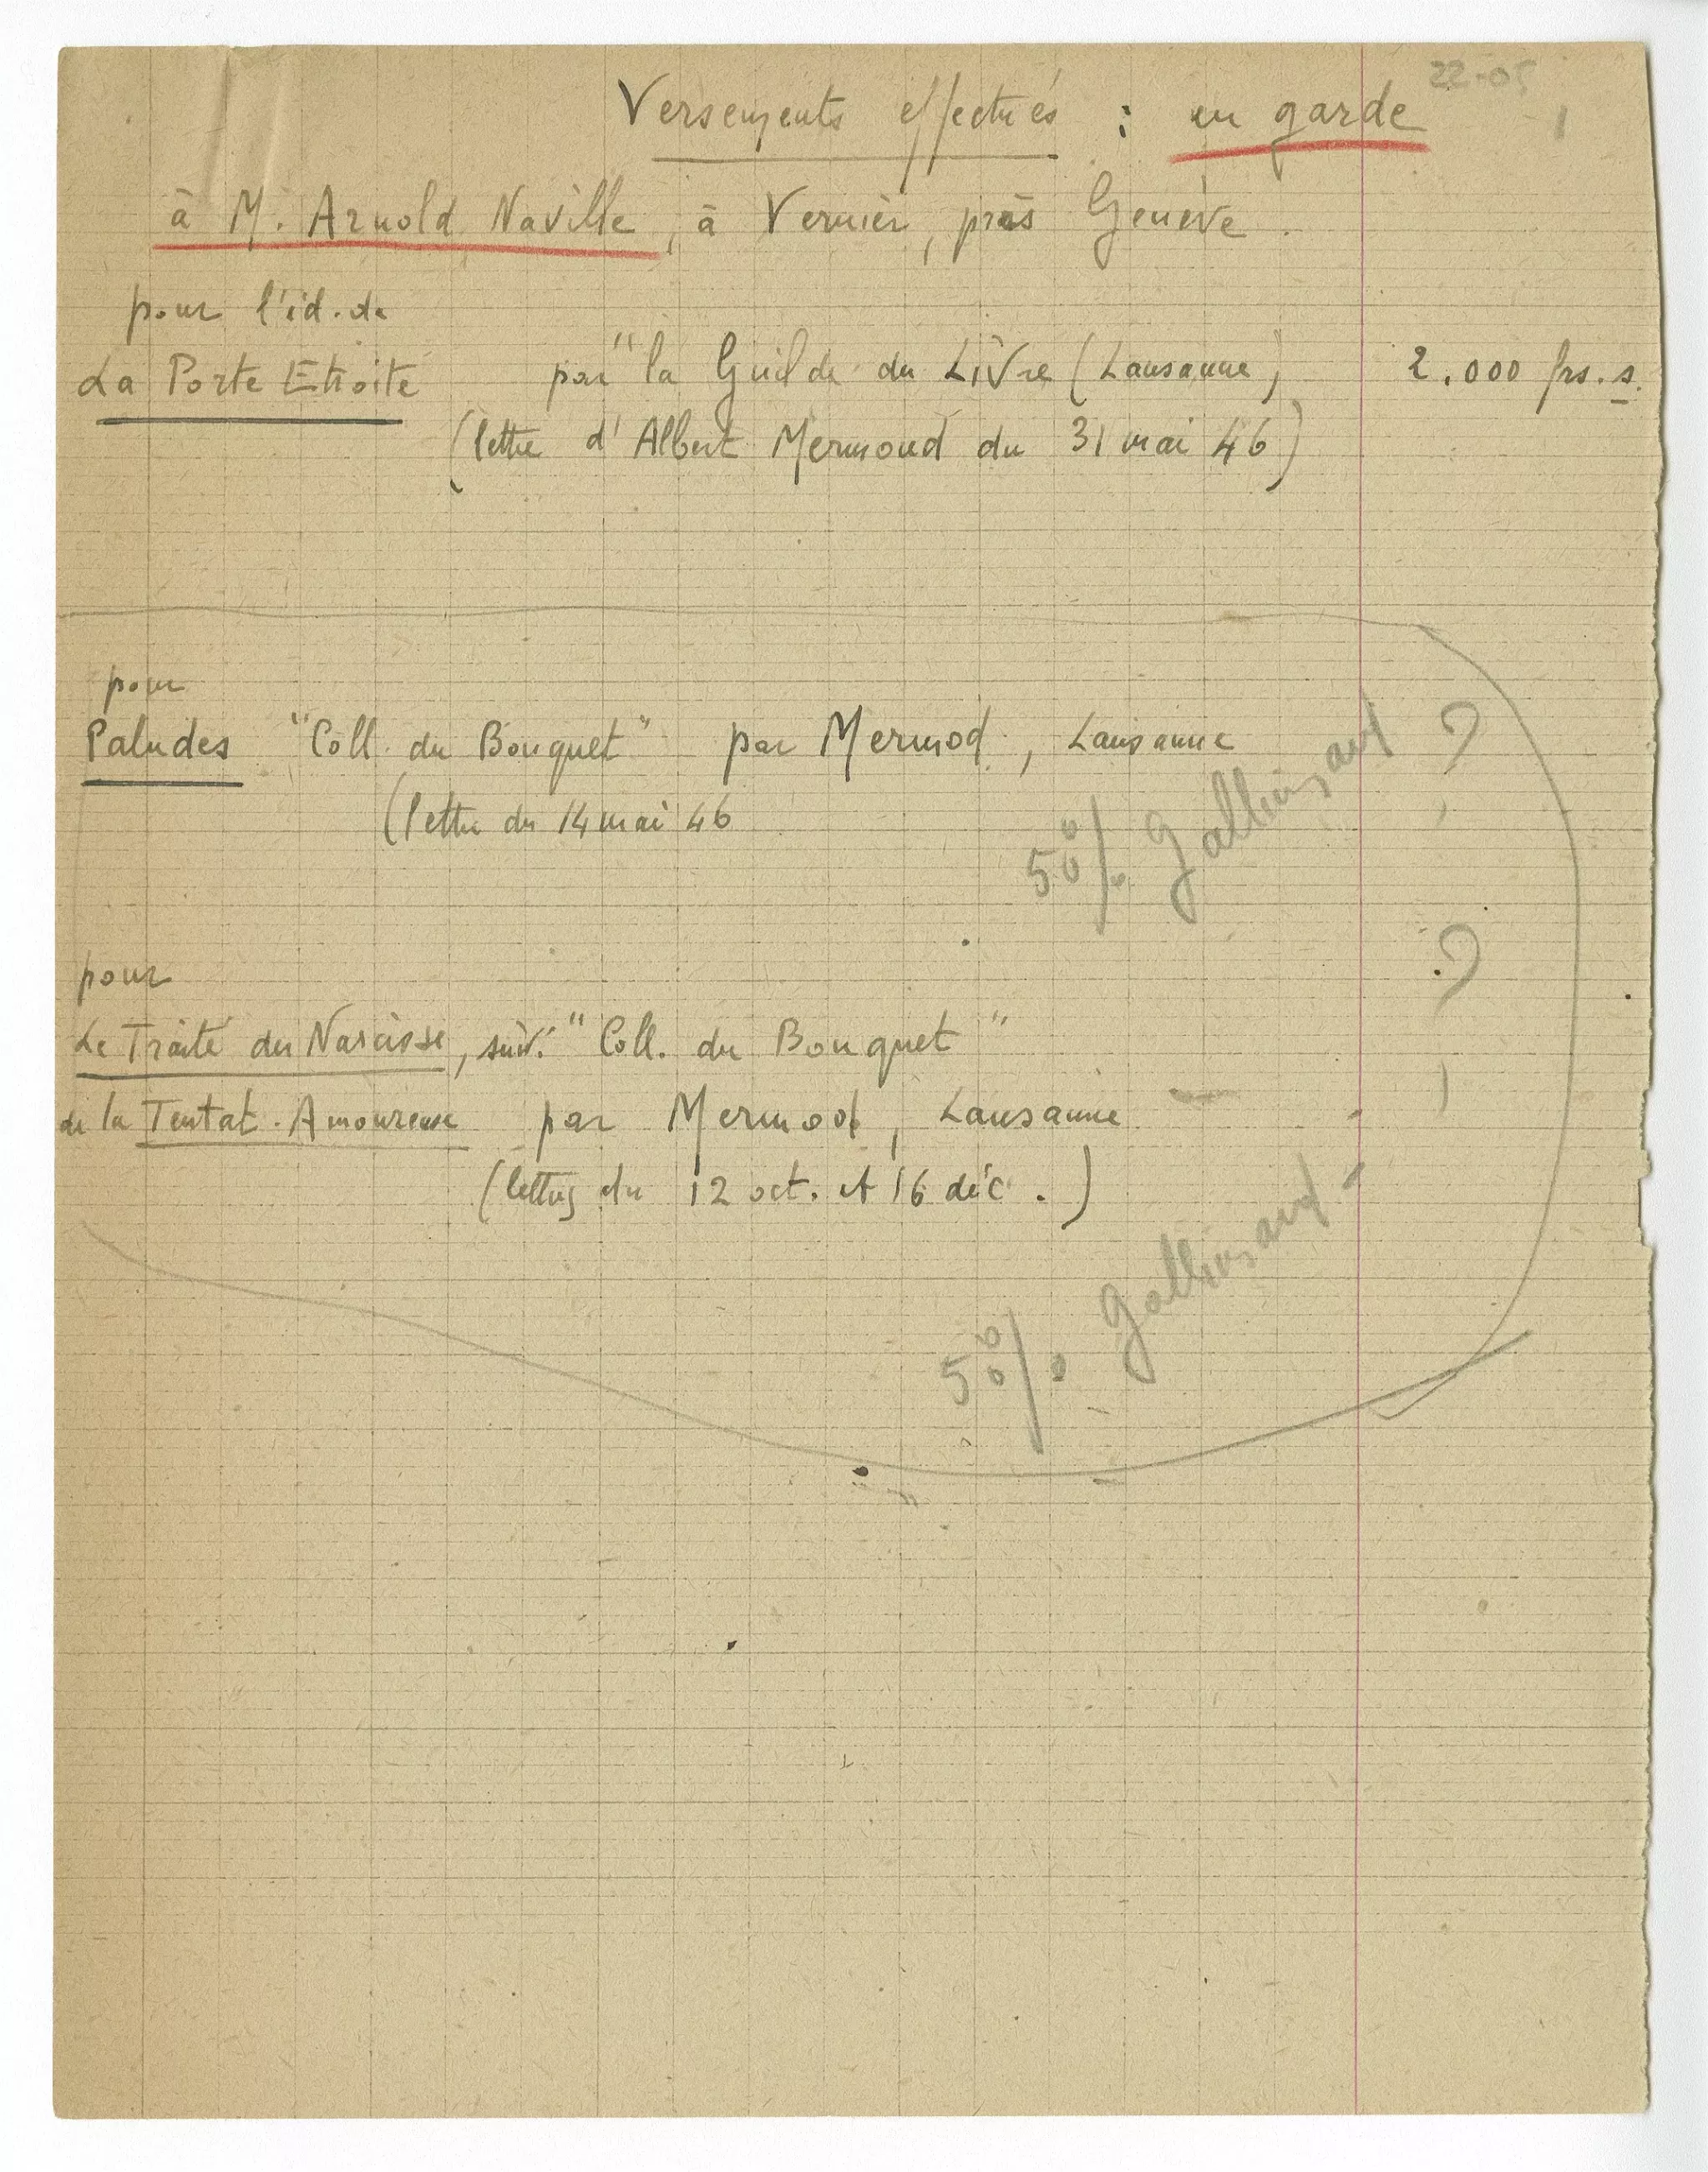 22-05
Versements effectués : en garde 1
à M. Arnold Naville, à Vernier, près Genève.
pour l'éd. de
La Porte Etroite par "la Guilde du Livre (Lausanne) 2.000 frs. s.
(lettre d'Albert Mermoud du 31 mai 46)
pour
Paludes "Coll. du Bouquet" par Mermod, Lausanne ?
(lettre du 14 mai 46
50% Gallimard
pour
?
Le Traité du Narcisse, suiv. "Coll. du Bouquet"
de la Tentat. Amoureuse par Mermod, Lausanne
(lettres du 12 oct. et 16 déc.)
50% Gallimard